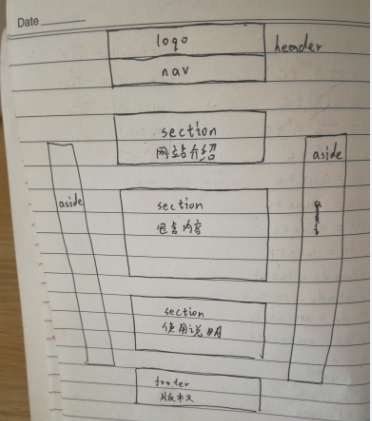 Date
logo
header
nav
section
网站介绍
aside
aside
section
包含内容
section
使用说明
footer
版权